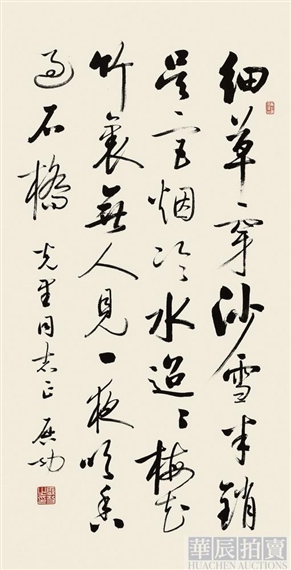 细草穿沙雪半销
吴宫烟冷水迢迢梅花
竹裏無人見一夜吹香
过石橋 光星同志正 启功
華辰拍賣
HUACHEN AUCTIONS